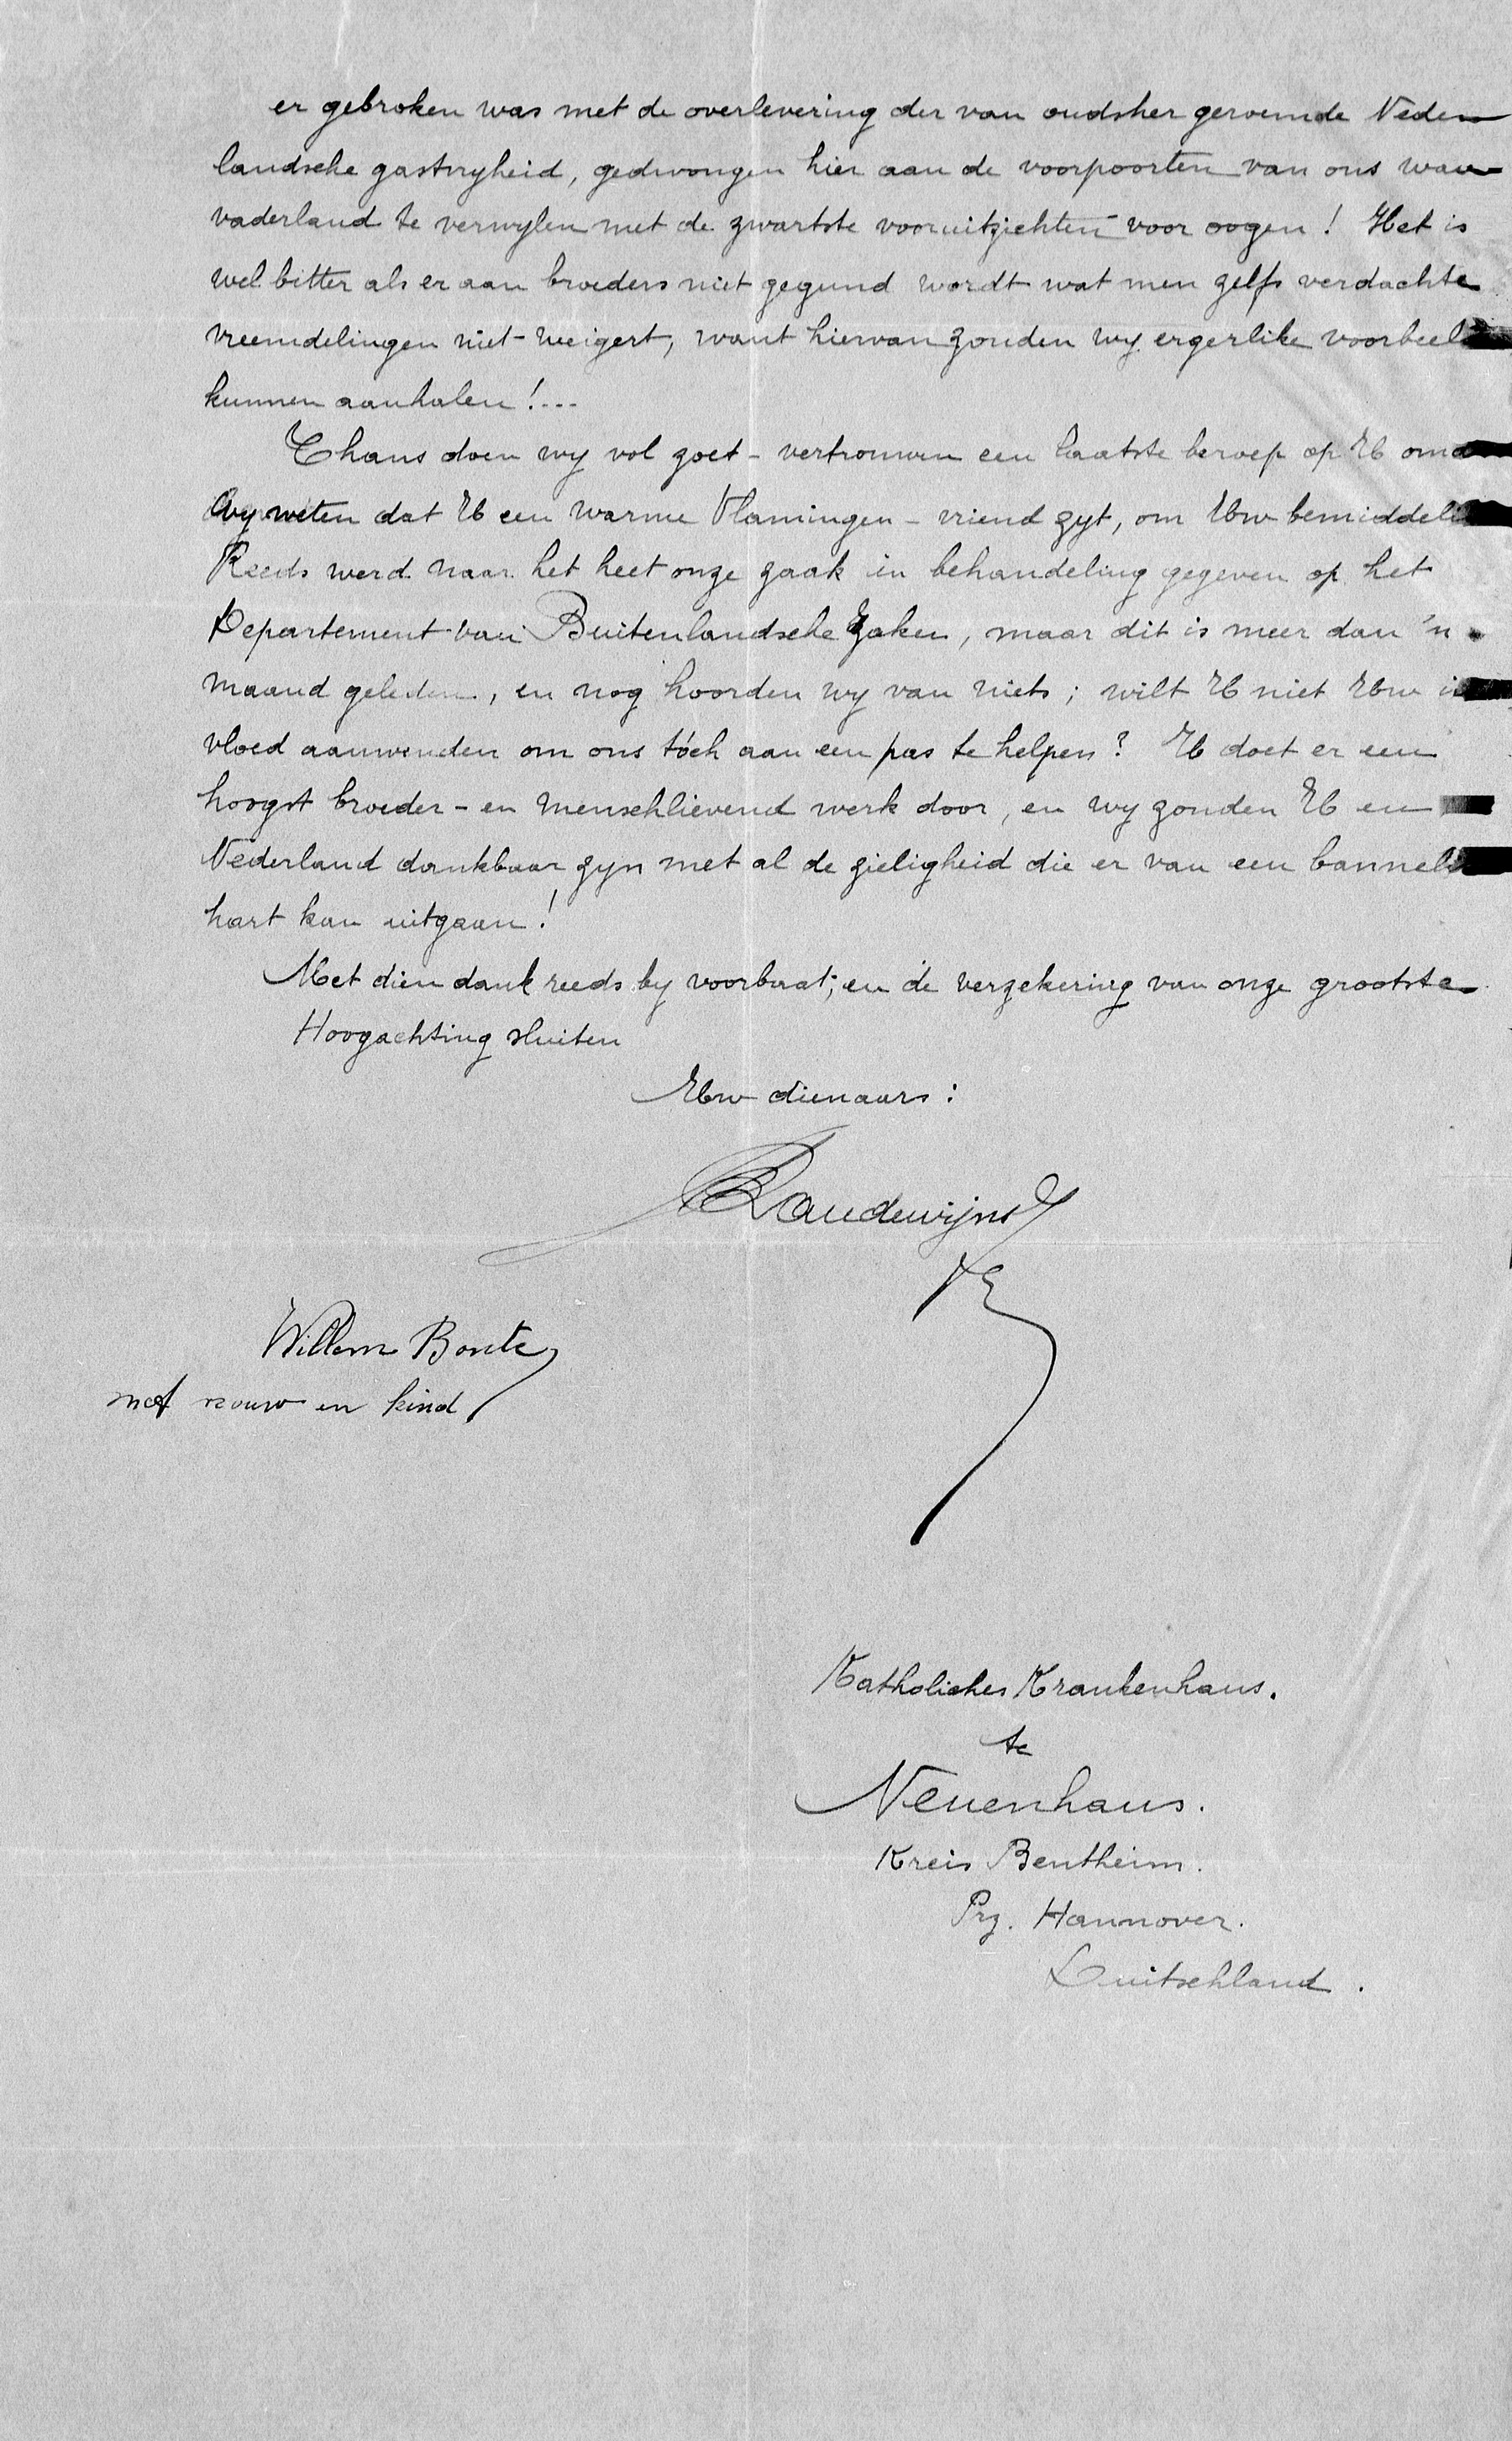 er gebroken was met de overlevering der van oudsher geroemde Neder
landsche gastvryheid, gedwongen hier aan de voorpoorten van ons waar
vaderland te verwylen met de zwartste vooruitzichten voor oogen! Het is
wel bitter als er aan broeders niet gegund wordt wat men zelfs verdachte
vreemdelingen niet-weigert, want hiervan zouden wy ergerlike voorbeel
kunnen aanhalen!...
Thans doen wy vol goet-vertrouwen een laatste beroep op U omd
wy weten dat U een warme Vlamingen-vriend zyt, om Uw bemiddeli
Reeds werd naar het heet onze zaak in behandeling gegeven op het
Departement van Buitenlandsche Zaken, maar dit is meer dan 'n
maand geleden, en nog hoorden wy van niets; wilt U niet Uw in
vloed aanwenden om ons tóch aan een pas te helpen? U doet er een
hoogst broeder-en menschlievend werk door, en wy zouden U en
Nederland dankbaar zyn met al de zieligheid die er van een banneli
hart kan uitgaan!
Met dien dank reeds by voorbaat, en de verzekering van onze grootste
Hoogachting sluiten
Uw dienaars:
Laudewijns
Willem Bonte
met vrouw en kind
Katholiches Krankenhaus.
te
Neuenhaus.
Kreis Bentheim.
Prz. Hannover.
Duitschland.